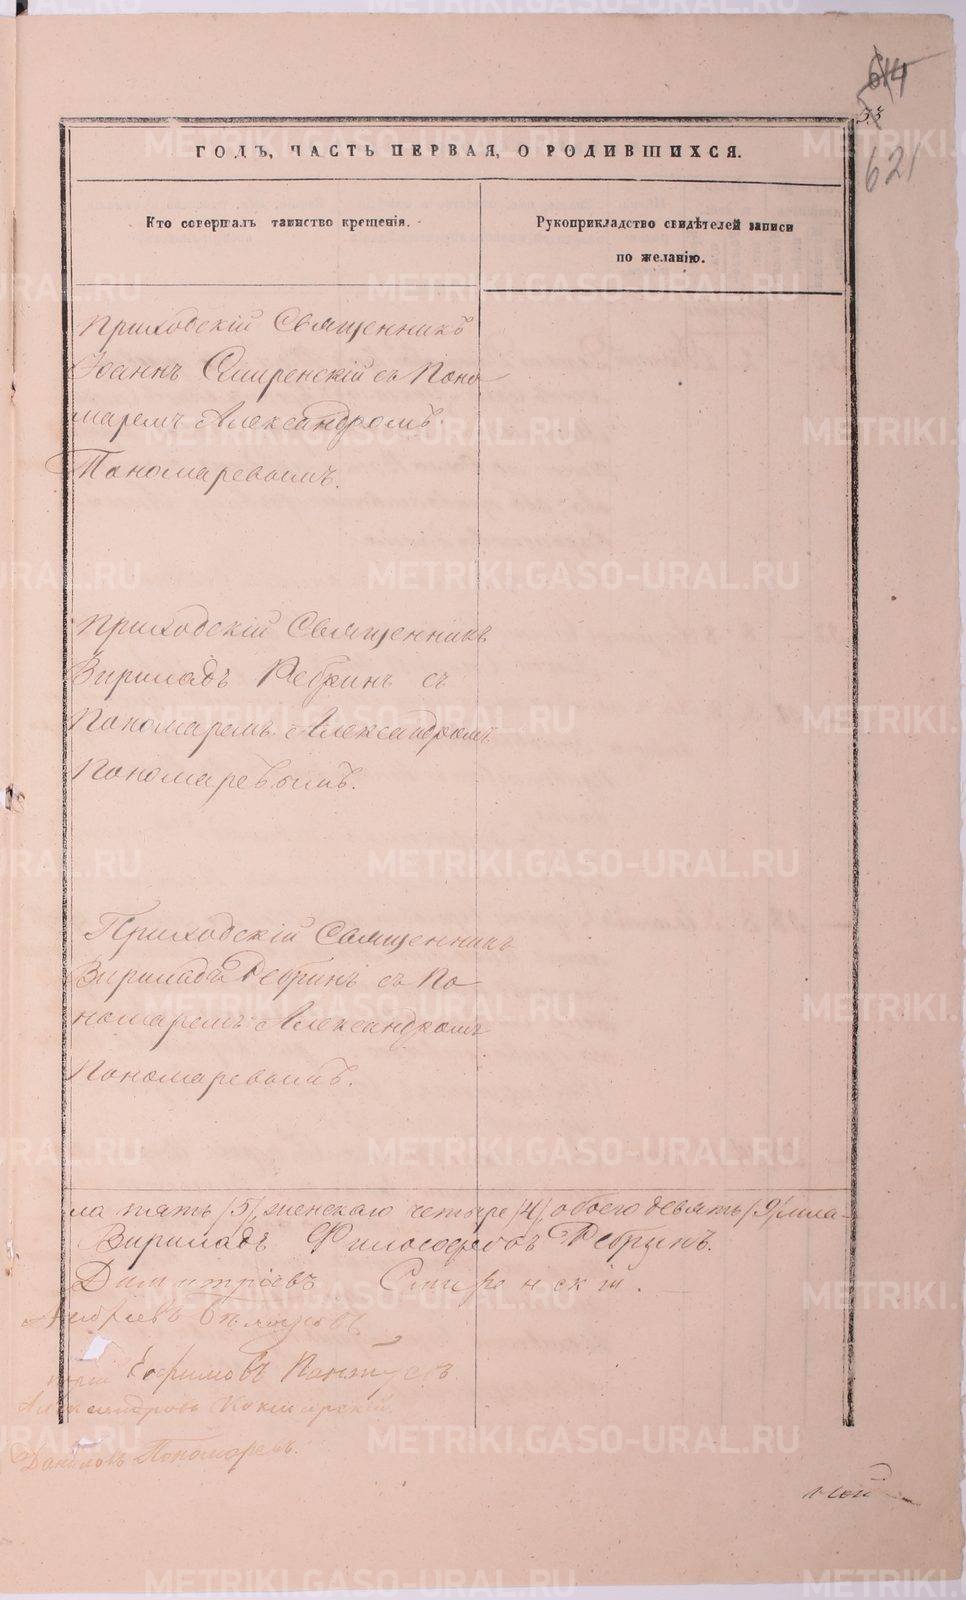 614
53
621
ГОДЪ, ЧАСТЬ ПЕРВАЯ, О РОДИВШИХСЯ.
Кто совершалъ таинство крещенія.
Рукоприкладство свидѣтелей записи
по желанію.
Приходскій Священникъ
Іоаннъ Смиренскій съ Поно
маремъ Александромъ
Пономаревымъ.
Приходскій Священникъ
Вириладъ Ребринъ съ
Пономаремъ Александромъ
Пономаревымъ.
Приходскій Священникъ
Вириладъ Ребринъ съ По
номаремъ Александромъ
Пономаревымъ.
ла пять /5/, женскаго четыре /4/, обоего девять /9/
Вириладъ Философовъ Ребринъ.
Димитріевъ Смиренскій.
Андреевъ
Ефимовъ
Александровъ
Даниловъ Пономаревъ.
METRIKI.GASO-URAL.RU